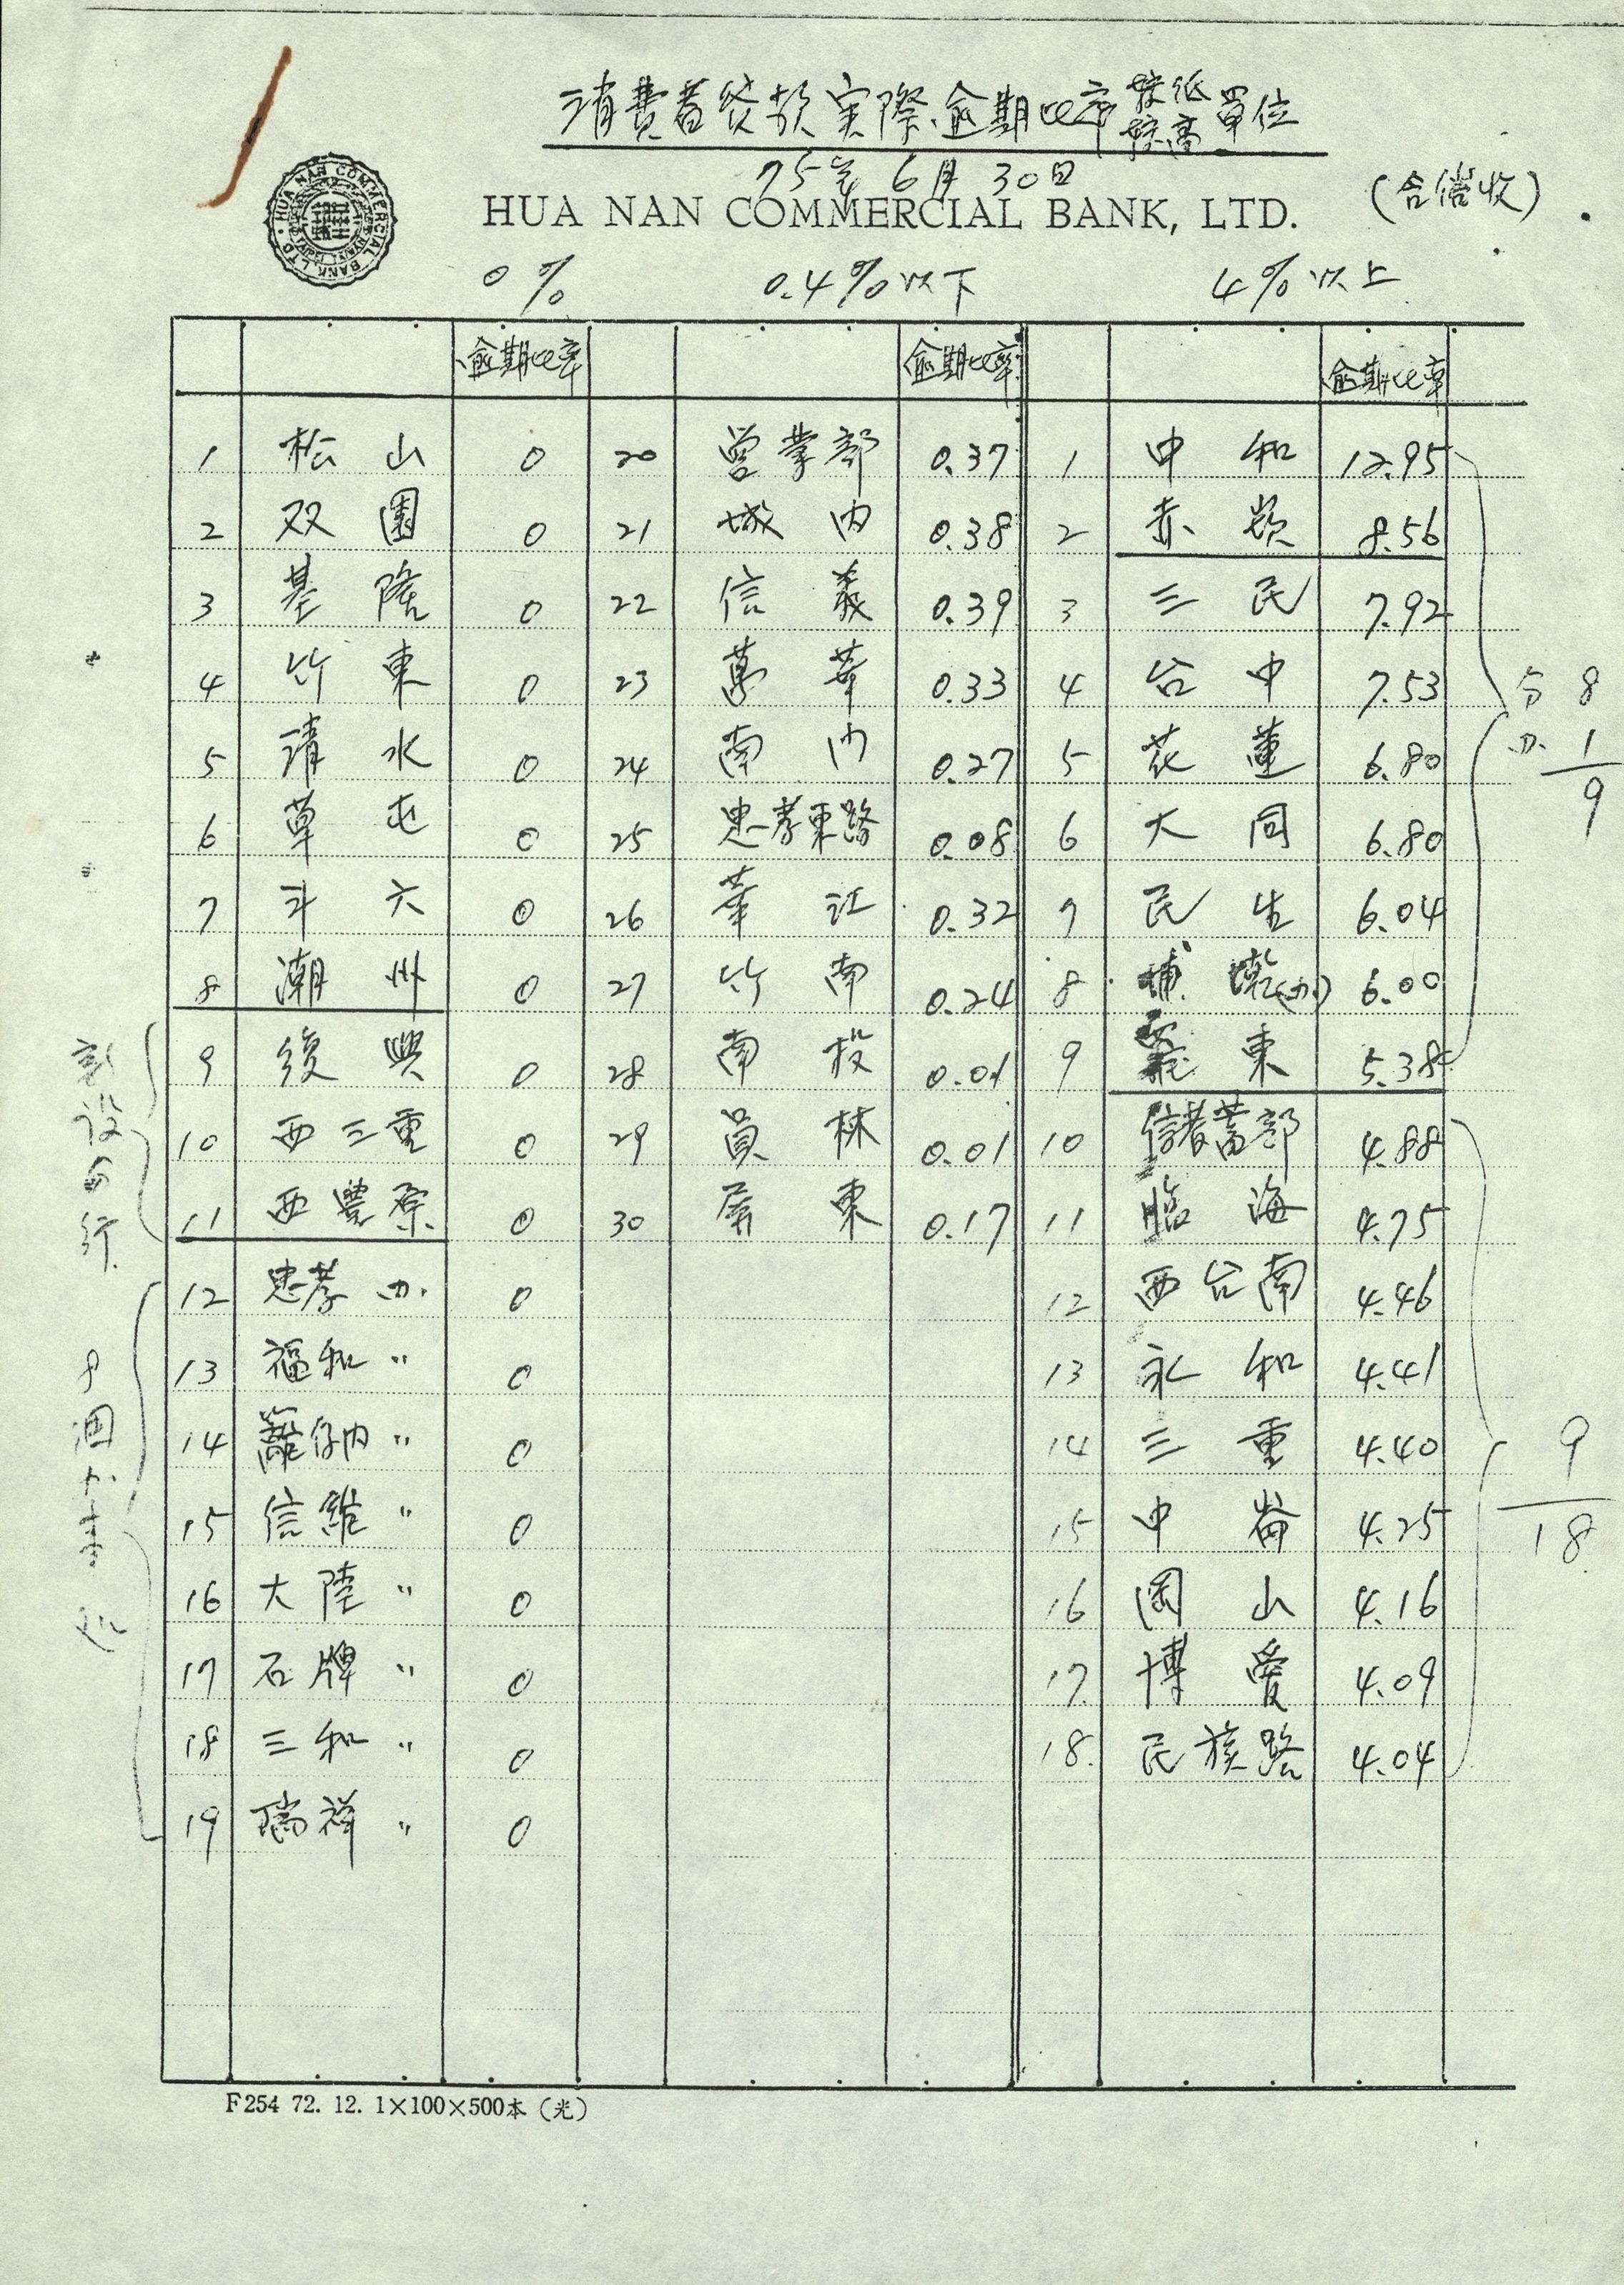 消費者貸款実際逾期比率較低較高單位
75年6月30日
HUA NAN COMMERCIAL BANK, LTD.
(含催收)
0% 0.4%以下 4%以上
逾期比率 逾期比率 逾期比率
1 松山 0 20 營業部 0.37 1 中和 12.95
2 双園 0 21 城内 0.38 2 赤崁 8.56
3 基隆 0 22 信義 0.39 3 三民 7.92
4 竹東 0 23 萬華 0.33 4 台中 7.53
5 清水 0 24 南内 0.27 5 花蓮 6.80
6 草屯 0 25 忠孝東路 0.08 6 大同 6.80
7 斗六 0 26 華江 0.32 7 民生 6.04
8 潮州 0 27 竹南 0.24 8 埔墘(办) 6.00
9 復興 0 28 南投 0.01 9 羅東 5.38
10 西三重 0 29 員林 0.01 10 儲蓄部 4.88
11 西豊原 0 30 屏東 0.17 11 臨海 4.75
12 忠孝办 0 12 西台南 4.46
13 福和〃 0 13 永和 4.41
14 籬仔内〃 0 14 三重 4.40
15 信維〃 0 15 中崙 4.25
16 大陸〃 0 16 岡山 4.16
17 石牌〃 0 17 博愛 4.09
18 三和〃 0 18. 民族路 4.04
19 瑞祥〃 0
分 8
办. 1
9
9
18
F254 72. 12. 1×100×500本(光)